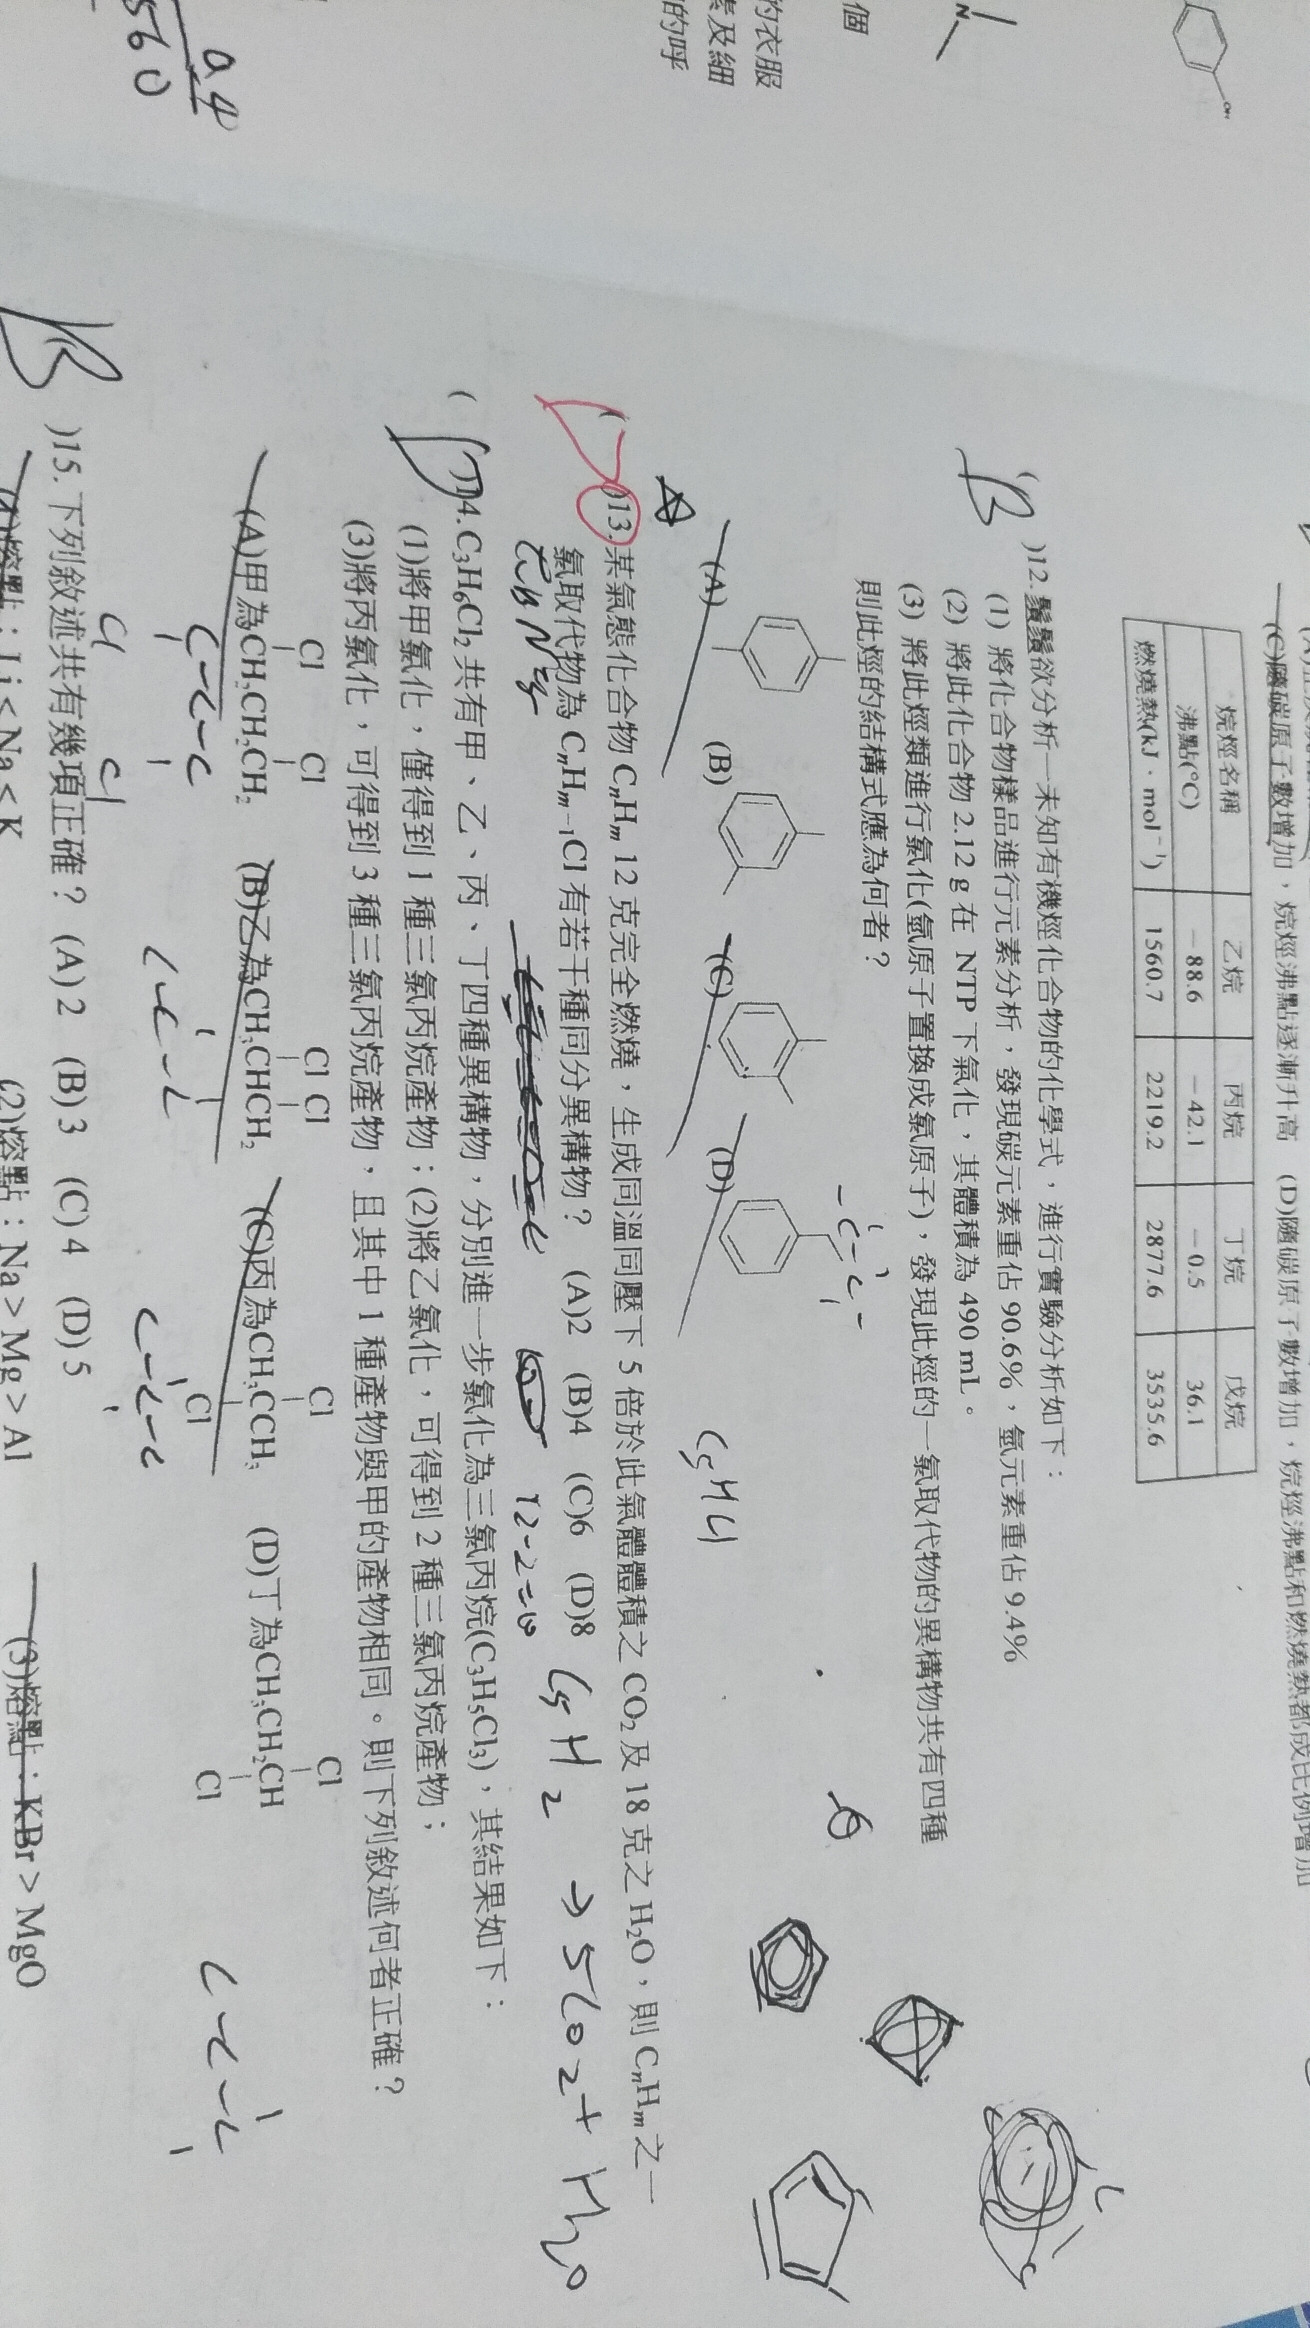 (C)隨碳原子數增加，烷烴沸點逐漸升高 (D)隨碳原子數增加，烷烴沸點和燃燒熱都成比例增加
烷烴名稱 乙烷 丙烷 丁烷 戊烷
沸點(°C) －88.6 －42.1 －0.5 36.1
燃燒熱(kJ·mol⁻¹) 1560.7 2219.2 2877.6 3535.6
B
)12.鬚鬚欲分析一未知有機烴化合物的化學式，進行實驗分析如下：
(1) 將化合物樣品進行元素分析，發現碳元素重佔 90.6%，氫元素重佔 9.4%
(2) 將此化合物 2.12 g 在 NTP 下氣化，其體積為 490 mL。
(3) 將此烴類進行氯化(氫原子置換成氯原子)，發現此烴的一氯取代物的異構物共有四種
則此烴的結構式應為何者？
(A) (B) (C) (D)
( )13.某氣態化合物 CₙHₘ 12 克完全燃燒，生成同溫同壓下 5 倍於此氣體體積之 CO₂ 及 18 克之 H₂O，則 CₙHₘ 之一
氯取代物為 CₙHₘ₋₁Cl 有若干種同分異構物？ (A)2 (B)4 (C)6 (D)8
12-2=10
C5H2 → 5CO2 + H2O
( D )14.C₃H₆Cl₂ 共有甲、乙、丙、丁四種異構物，分別進一步氯化為三氯丙烷(C₃H₅Cl₃)，其結果如下：
(1)將甲氯化，僅得到 1 種三氯丙烷產物；(2)將乙氯化，可得到 2 種三氯丙烷產物；
(3)將丙氯化，可得到 3 種三氯丙烷產物，且其中 1 種產物與甲的產物相同。則下列敘述何者正確？
Cl Cl Cl Cl Cl Cl
(A)甲為CH₂CH₂CH₂ (B)乙為CH₃CHCH₂ (C)丙為CH₃CCH₃ (D)丁為CH₃CH₂CH
Cl Cl
C-C-C C-C-C C-C-C C-C-C
Cl Cl
B
)15.下列敘述共有幾項正確？ (A) 2 (B) 3 (C) 4 (D) 5
(1)熔點：Li < Na < K (2)熔點：Na > Mg > Al (3)熔點：KBr > MgO
個
的衣服
及細
的呼
N
OH
0.4
560